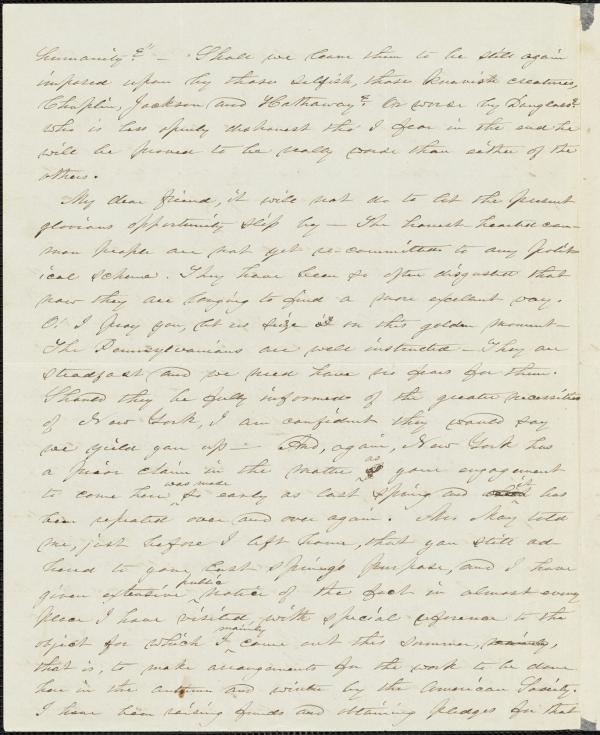 humanity?" — Shall we leave them to be still again
imposed upon by those selfish, those knavish creatures,
Chaplin, Jackson and Hathaway? Or worse by Douglass?
who is less openly dishonest tho' I fear in the end he
will be proved to be really worse than either of the
others.
My dear friend, it will not do to let the present
glorious opportunity slip by — The honest hearted com-
mon people are not yet re-committed to any polit-
ical scheme. They have been so often disgusted that
now they are longing to find a more excelent way.
O! I pray you, let us seize on this golden moment —
The Pennsylvanians are well instructed — They are
steadfast and we need have no fears for them.
Should they be fully informed of the greater necessities
of New York, I am confident they would say
we yield you up — And, again, New York has
a prior claim in the matter as your engagement
to come here was made so early as last spring and it has
been repeated over and over again. Mr. May told
me, just before I left home, that you still ad-
hered to your last springs purpose, and I have
given extensive public notice of the fact in almost every
place I have visited, with special reference to the
object for which I mainly came out this summer,
that is, to make arrangements for the work to be done
here in the autumn and winter by the American Society.
I have been raising funds and obtaining pledges for that